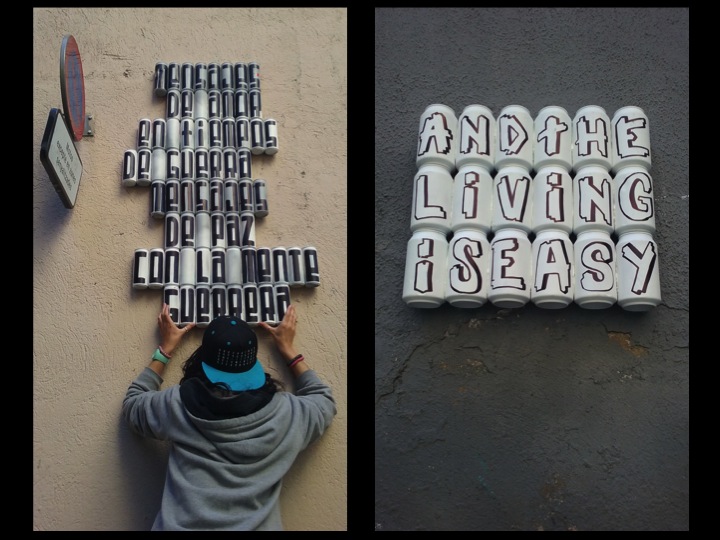 MENSAJES
DE AMOR
en tiempos
DE GUERRA
MENSAJES
DE PAZ
CON LA MENTE
GUERRERA
AND tHE
LiViNG
iS EASY